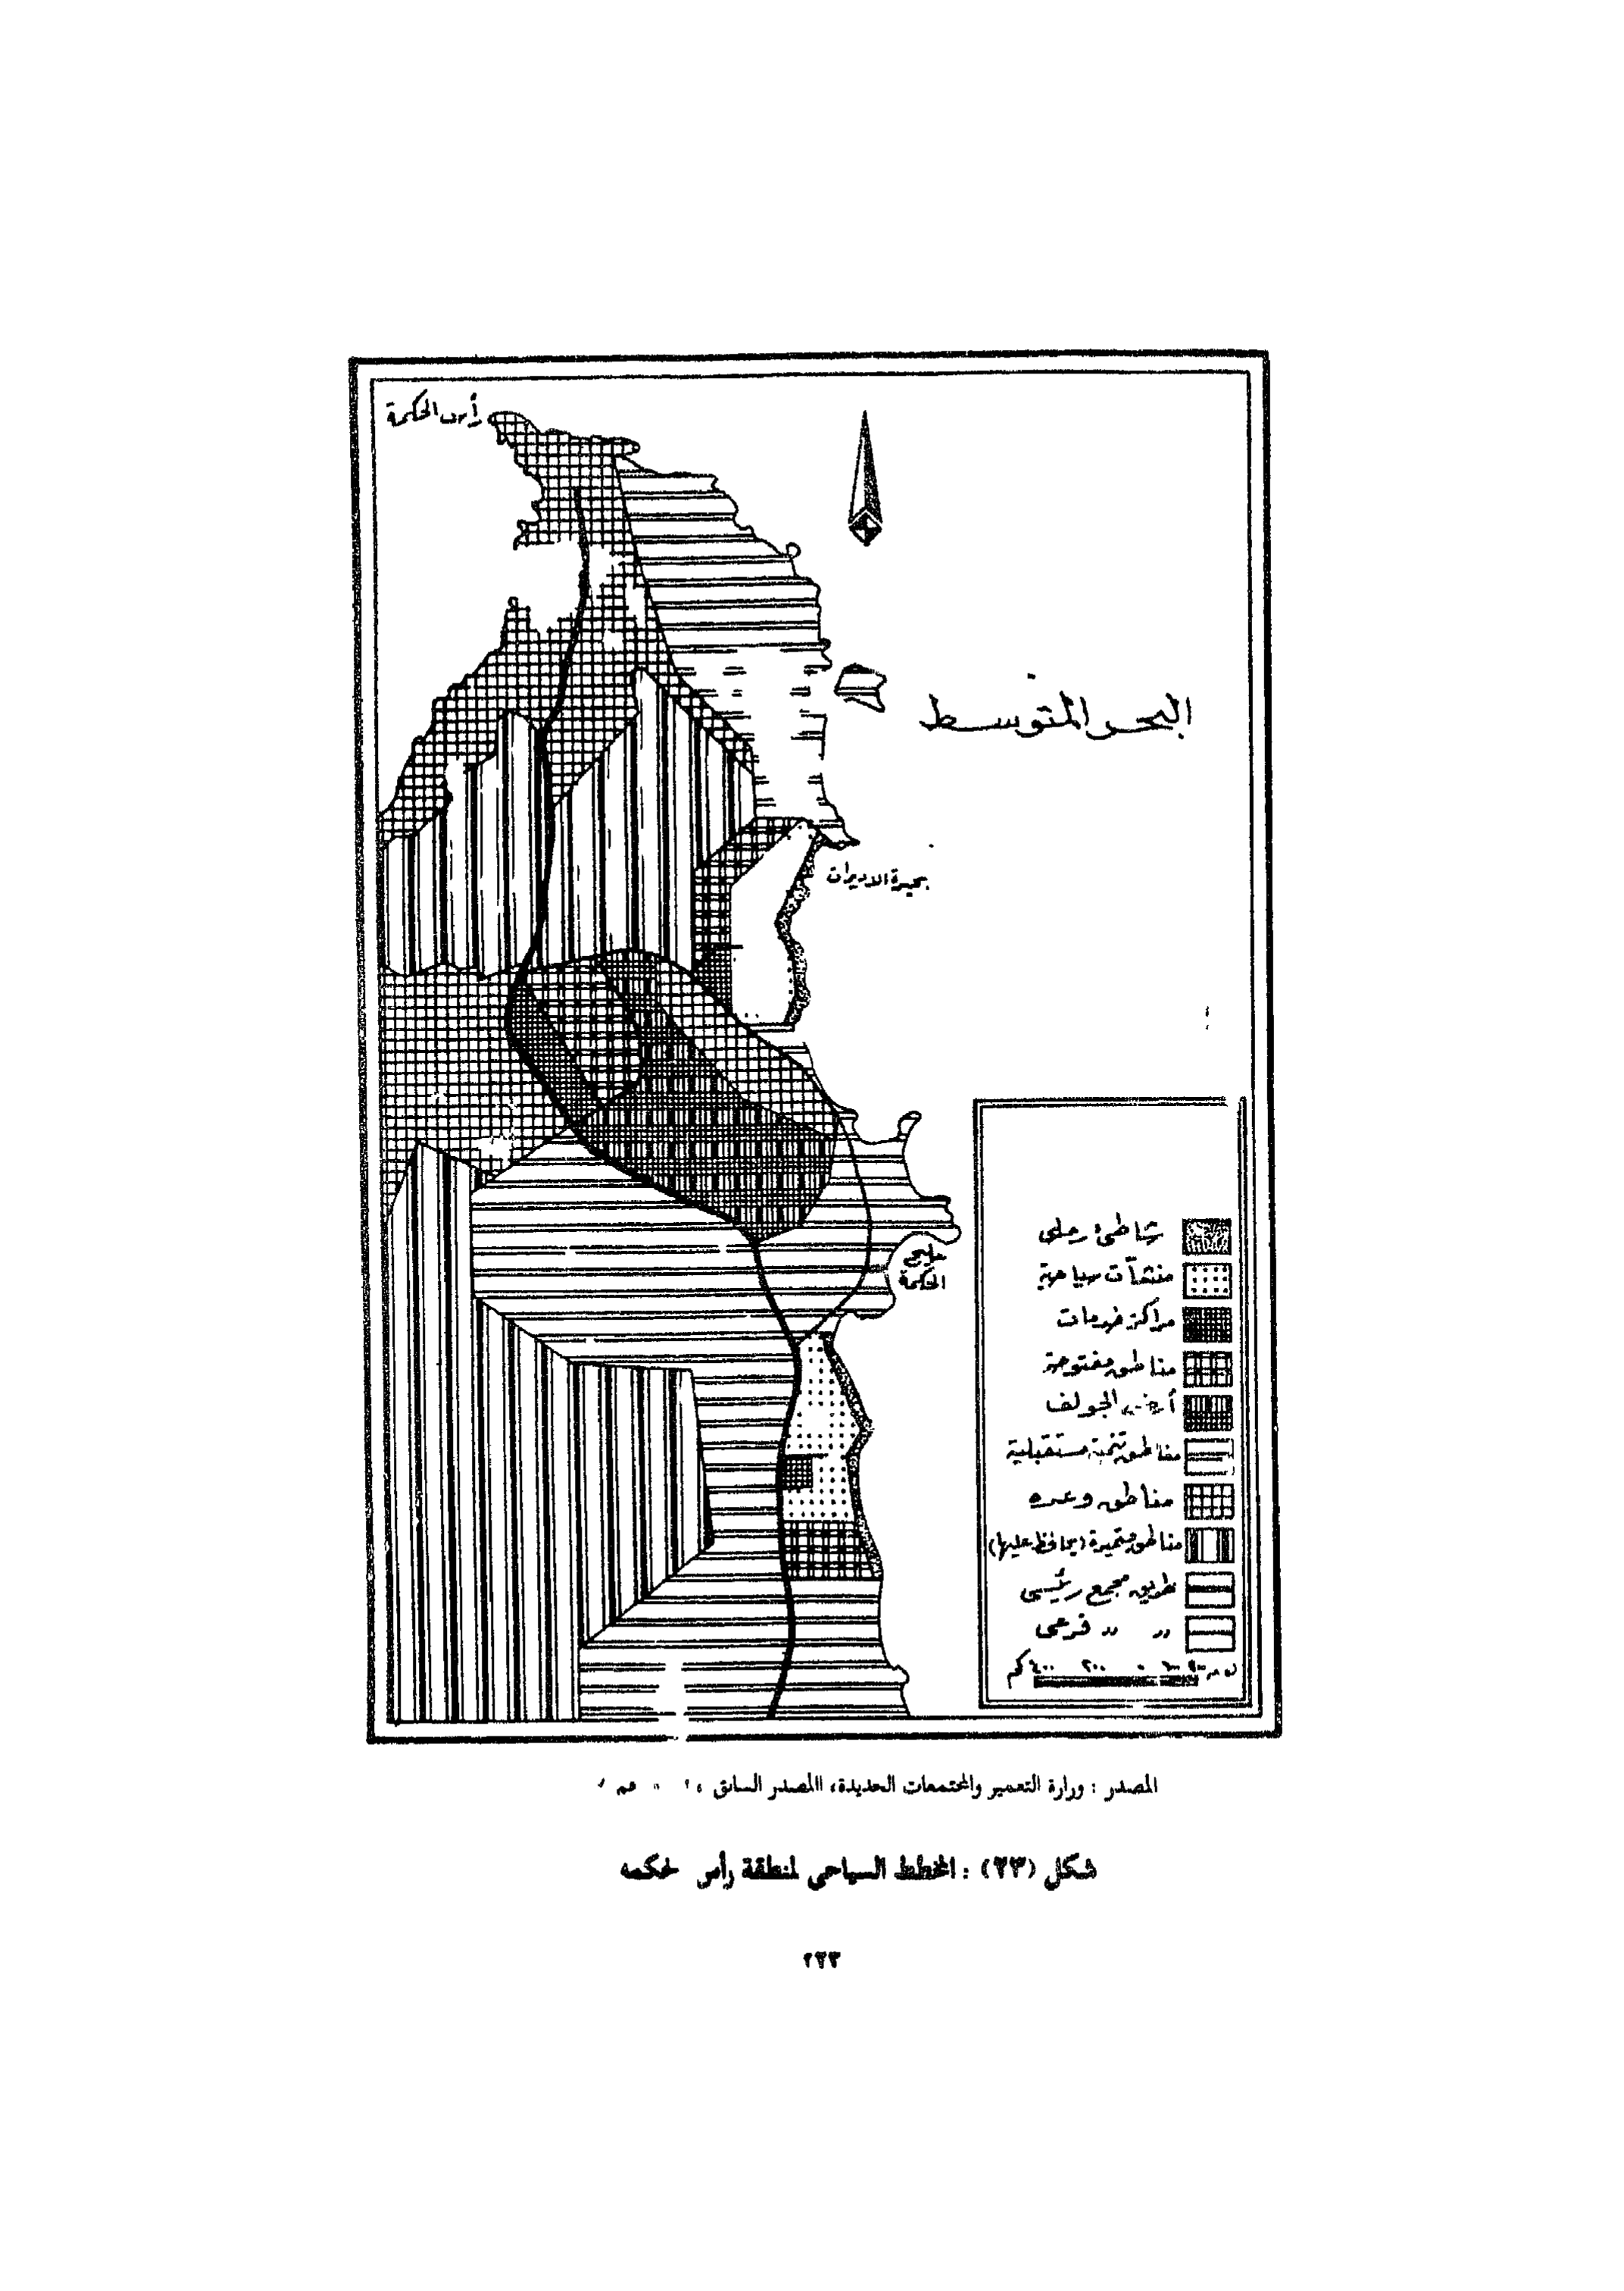 رأس الحكمة
البحر المتوسط
بحيرة الاديرات
خليج
الحكمة
شاطئ رملى
منشآت سياحية
مراكز خدمات
مناطق مفتوحة
أرض الجولف
مناطق تنمية مستقبلية
مناطق وعره
مناطق متميزة (يحافظ عليها)
طريق مجمع رئيسى
〃 〃 فرعى
٤٠٠ كم
المصدر : وزارة التعمير والمجتمعات الجديدة، المصدر السابق ،
شكل (٢٣) : المخطط السياحى لمنطقة رأس لحكمه
٢٢٣